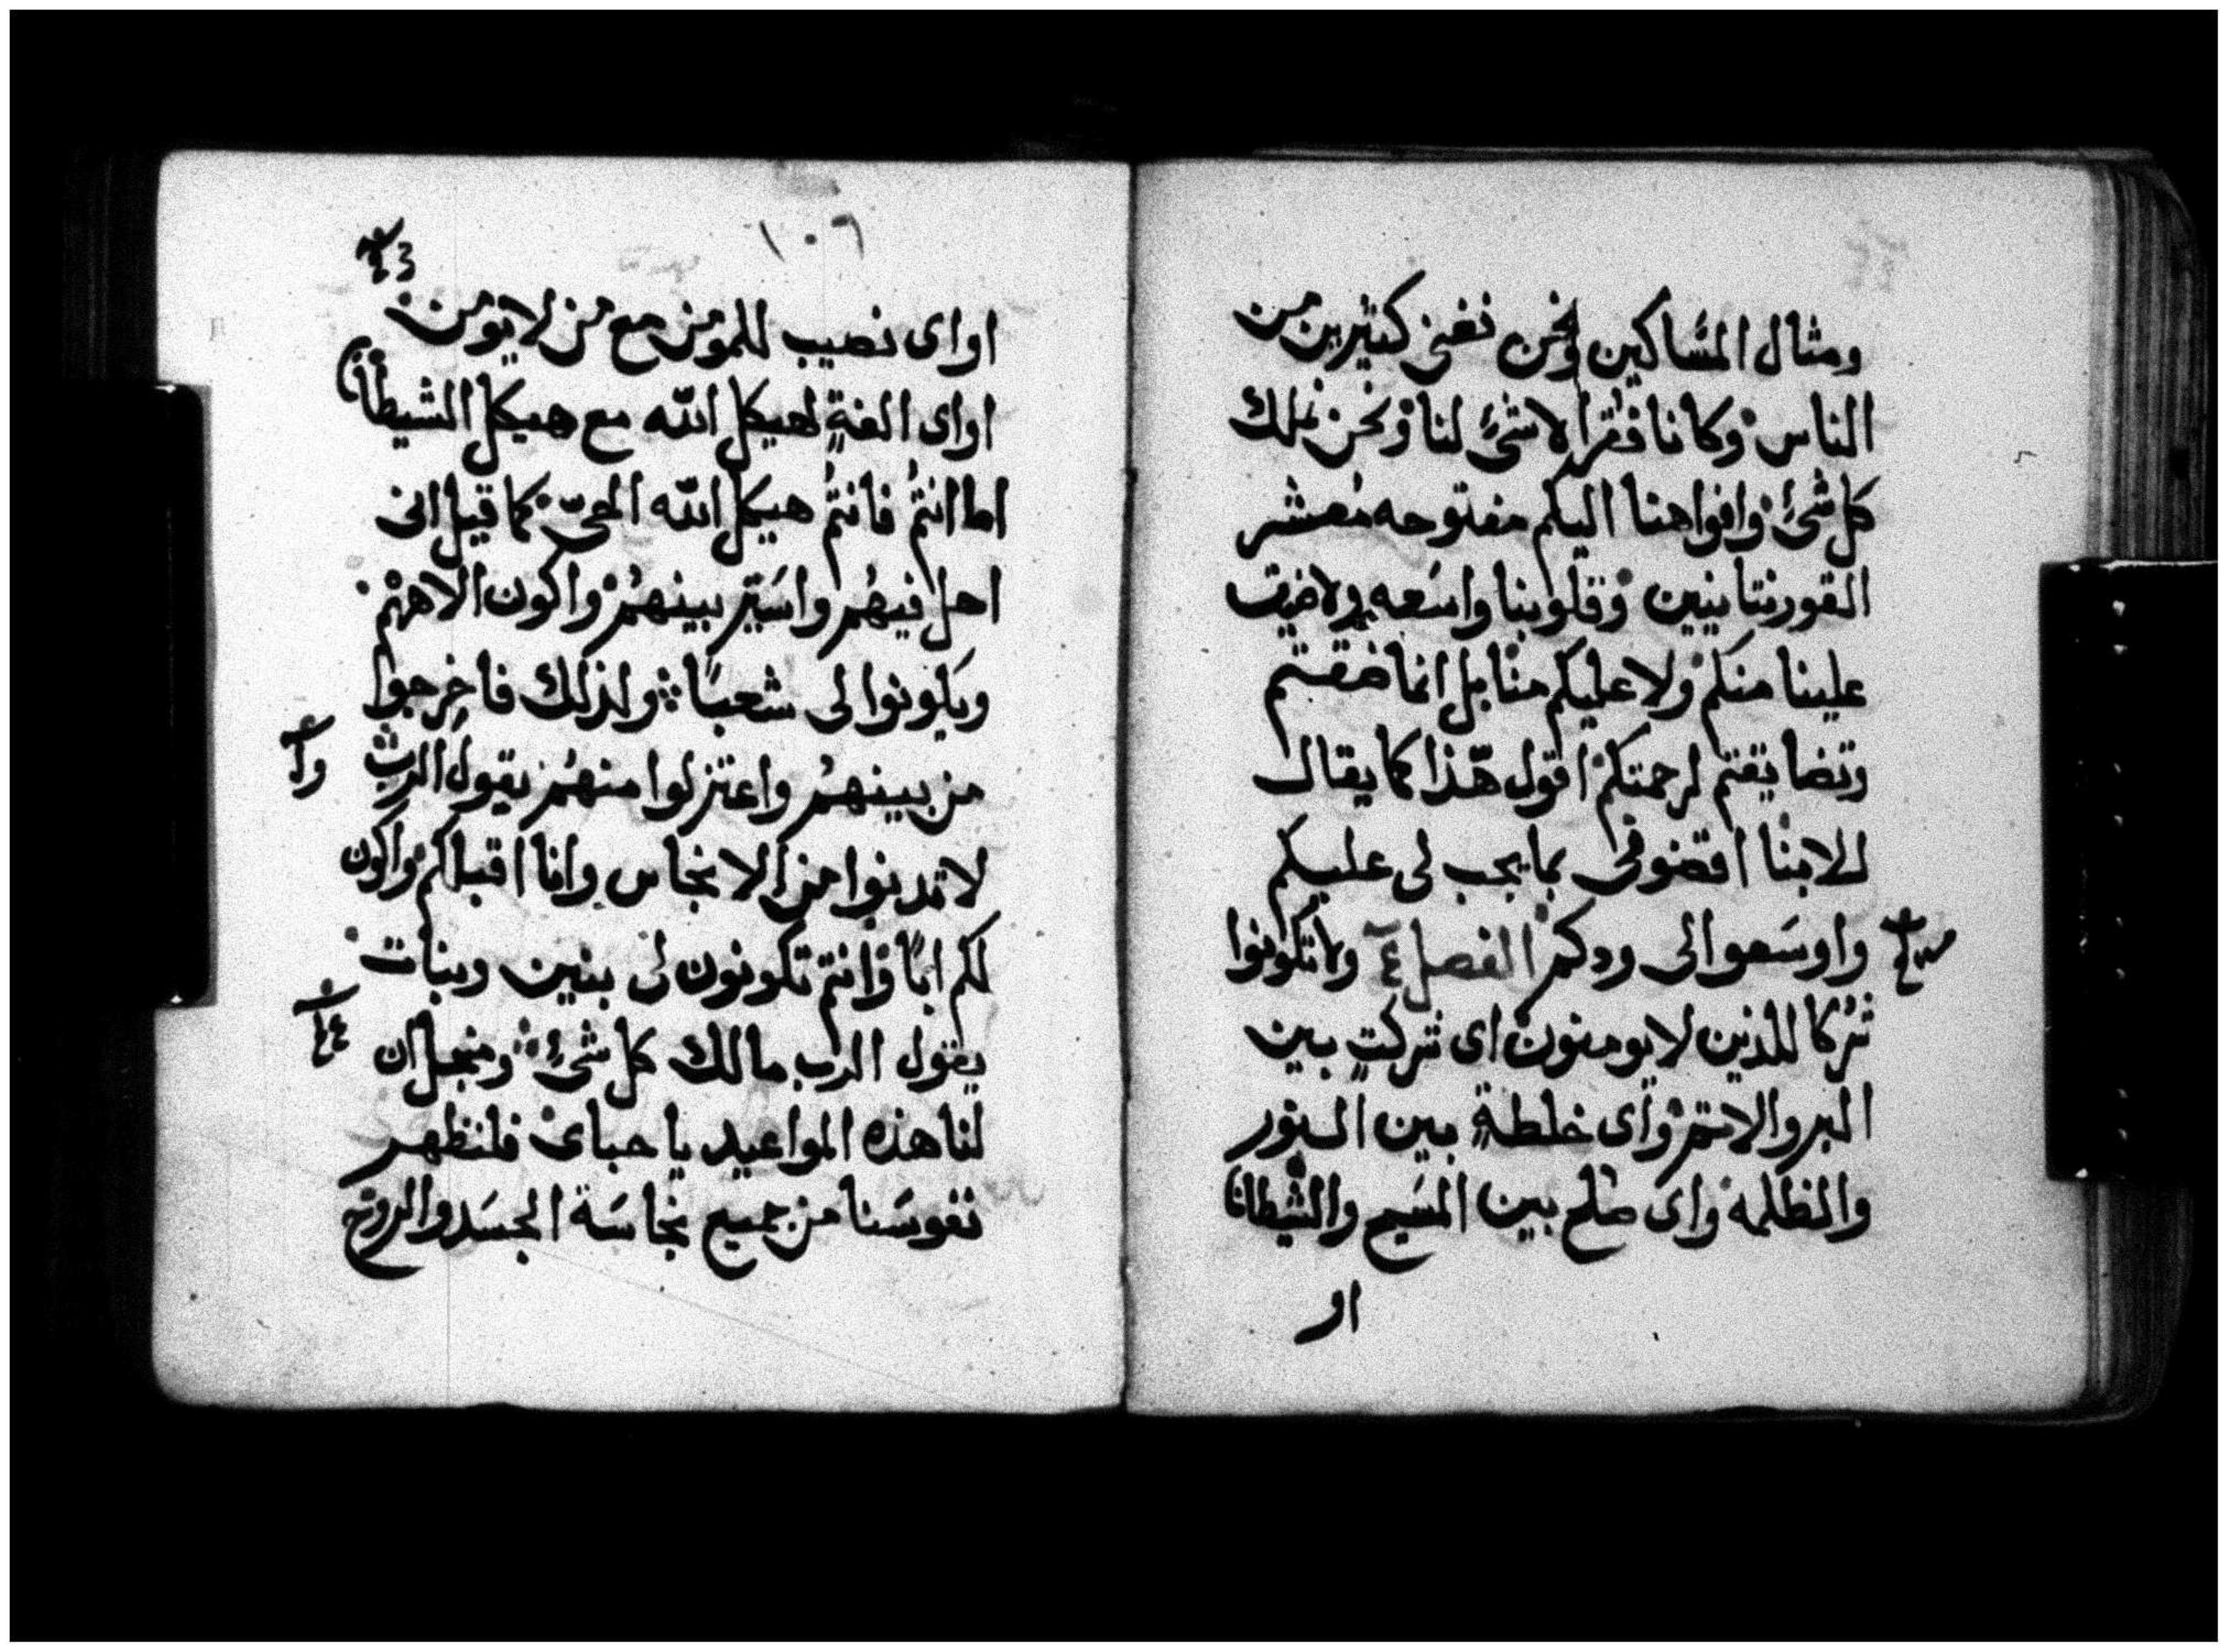 ومثال المساكين ونحن نغنى كثيرين من
الناس وكاننا فقرا لا شئ لنا ونحن نملك
كل شئ وافواهنا اليكم مفتوحه معشر
القورنتانيين وقلوبنا واسعه ولا ضيق
علينا منكم ولا عليكم منا بل انما ضقتم
وتضايقتم لرحمتكم اقول هذا كما يقال
للابنا اقضونى بما يجب لى عليكم
واوسعوا الى ودكم الفصل ٤ ولا تكونوا
شركا للذين لا يومنون اى شركت بين
البر والاثم واى خلطة بين النور
والظلمه واى صلح بين المسيح والشيطان
او
١٠٦
او اى نصيب للمومن مع من لا يومن
او اى الفة لهيكل الله مع هيكل الشيطان
اما انتم فانتم هيكل الله الحى كما قيل انى
احل فيهم واسير بينهم واكون الاههم
ويكونوا لى شعبا ولذلك فاخرجوا
من بينهم واعتزلوا منهم يقول الرب
لا تدنوا من الانجاس وانا اقبلكم واكون
لكم ابا وانتم تكونون لى بنين وبنات
يقول الرب مالك كل شئ ومنجل ان
لنا هذه المواعيد يا حباى فلنطهر
نفوسنا من جميع نجاسة الجسد والروح